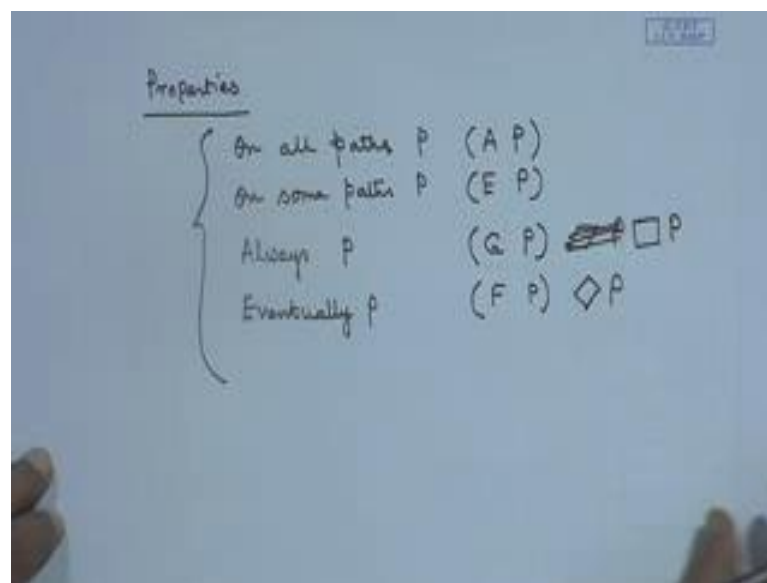 Properties
On all paths P (A P)
On some paths P (E P)
Always P (G P) □ P
Eventually P (F P) ◇ P